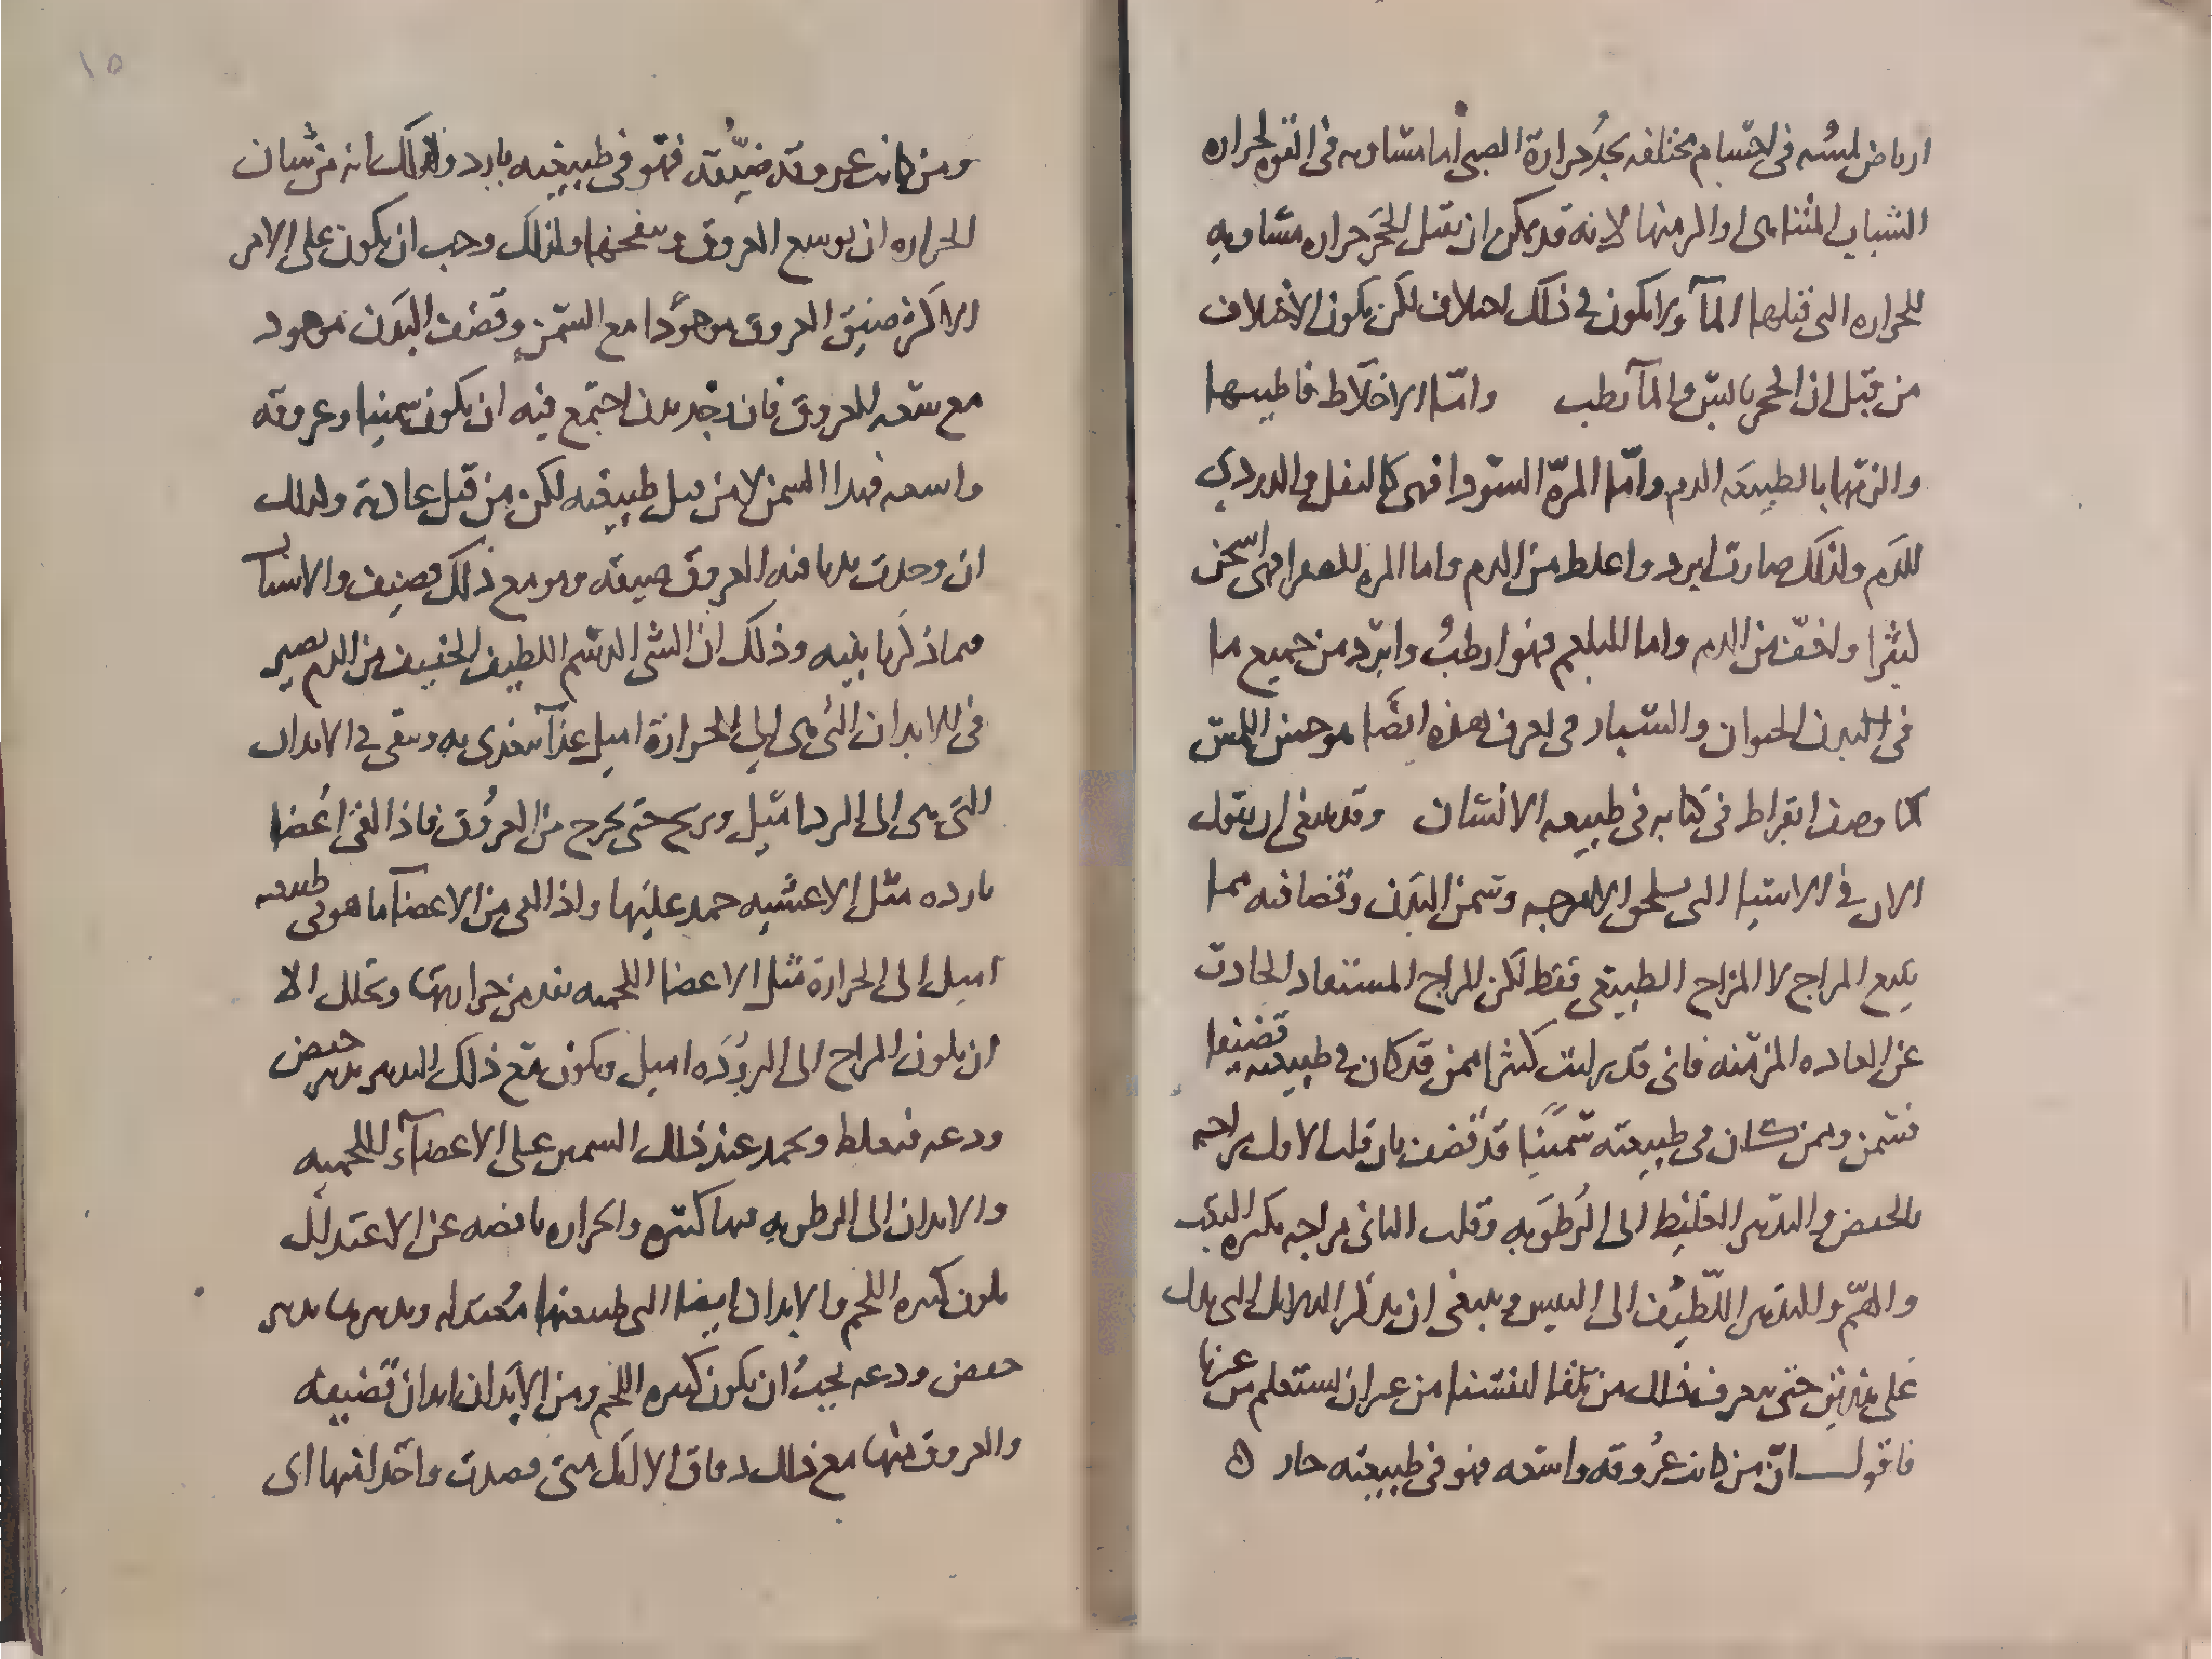 ارتاض لمسه في اجسام مختلفه يجد حرارة الصبي اما مساويه في القوه لحراره
الشباب المتناهى او الدمنها لانه قد يمكن ان تقبل الحجر حراره مساويه
للحراره التى قبلها المآ ولا يكون فى ذلك اختلاف لكن يكون الاختلاف
من قبل ان الحجر يابس والمآ رطب وامّا الاخلاط فاطيبها
والزمها بالطبيعه الدم وامّا المرّة السودا فهى كالثفل والدردي
للدم ولذلك صارت ابرد واغلظ من الدم واما المره الصفرا فهى اسخن
كثيرا واخف من الدم واما البلغم فهو ارطب وابرد من جميع ما
فى البدن الحيوان والسبار فى تعرف هذه ايضًا هو حس اللمس
كما وصف ابقراط في كتابه في طبيعه الانسان وقد ينبغى ان نقول
الان في الاشيا التى تلحق الامزجه وسمن البدن وقضافته مما
يتبع المزاج لا المزاج الطبيعى فقط لكن المزاج المستفاد الحادث
عن العاده المزمنه فانى قد رايت كثيرا ممن قد كان فى طبيعته قضيفا
فسمن وممن كان فى طبيعته سمينًا قد قضف بان قلب الاول مزاجه
بالخفض والتدبير الغليظ الى الرطوبه وقلب الثانى مزاجه بكثره التعب
والهمّ والتدبير اللطيف الى اليبس وينبغى ان نذكر الدلايل التى يدل
على هذين حتى نعرف ذلك من تلقا انفسنا من غير ان نستعلم من غيرنا
فاقول انّ من كانت عروقه واسعه فهو فى طبيعته حار ه
١٥
ومن كانت عروقه ضيّقه فهو فى طبيعته بارد وذلك انه من شان
الحراره ان توسع العروق وتنفخها ولذلك وجب ان يكون على الامر
الاكثر ضيق العروق موجودًا مع السمن وقضف البدن موجود
مع سعه العروق فان وجد بدن اجتمع فيه ان يكون سمينا وعروقه
واسعه فهذا السمن لا من قبل طبيعته لكن من قبل عادته وكذلك
ان وجدت بدنا فيه العروق ضيقه وهو مع ذلك قضيف والاسباب
فيما ذكرنا بينه وذلك ان الشى الدسم اللطيف الخفيف من الدم يصير
فى الابدان التى هى الى الحرارة اميل غذآ يغتذى به ويبقى فى الابدان
التى هى الى البرد اميل وريح حتى يخرج من العروق فاذا لقى اعضا
بارده مثل الاغشيه جمد عليها واذا لقى من الاعضآ ما هو فى طبيعته
اميل الى الحرارة مثل الاعضا اللحميه نفد من حرارتها وتحلل الا
ان يكون المزاج الى البروده اميل ويكون مع ذلك التدبير تدبير خفض
ودعه فيغلظ ويجمد عند ذلك السمين على الاعضآء اللحميه
والابدان الى الرطوبه فيها كثيره والحراره ناقصه عن الاعتدال
يكون كثيره اللحم والابدان ايضا التى طبيعتها معتدله وتدبيرها تدبير
خفض ودعه يجب ان يكون كثيره اللحم ومن الابدان ابدان قضيفه
والعروق منها مع ذلك دقاق الا انك متى فصدت واحدا منها اى